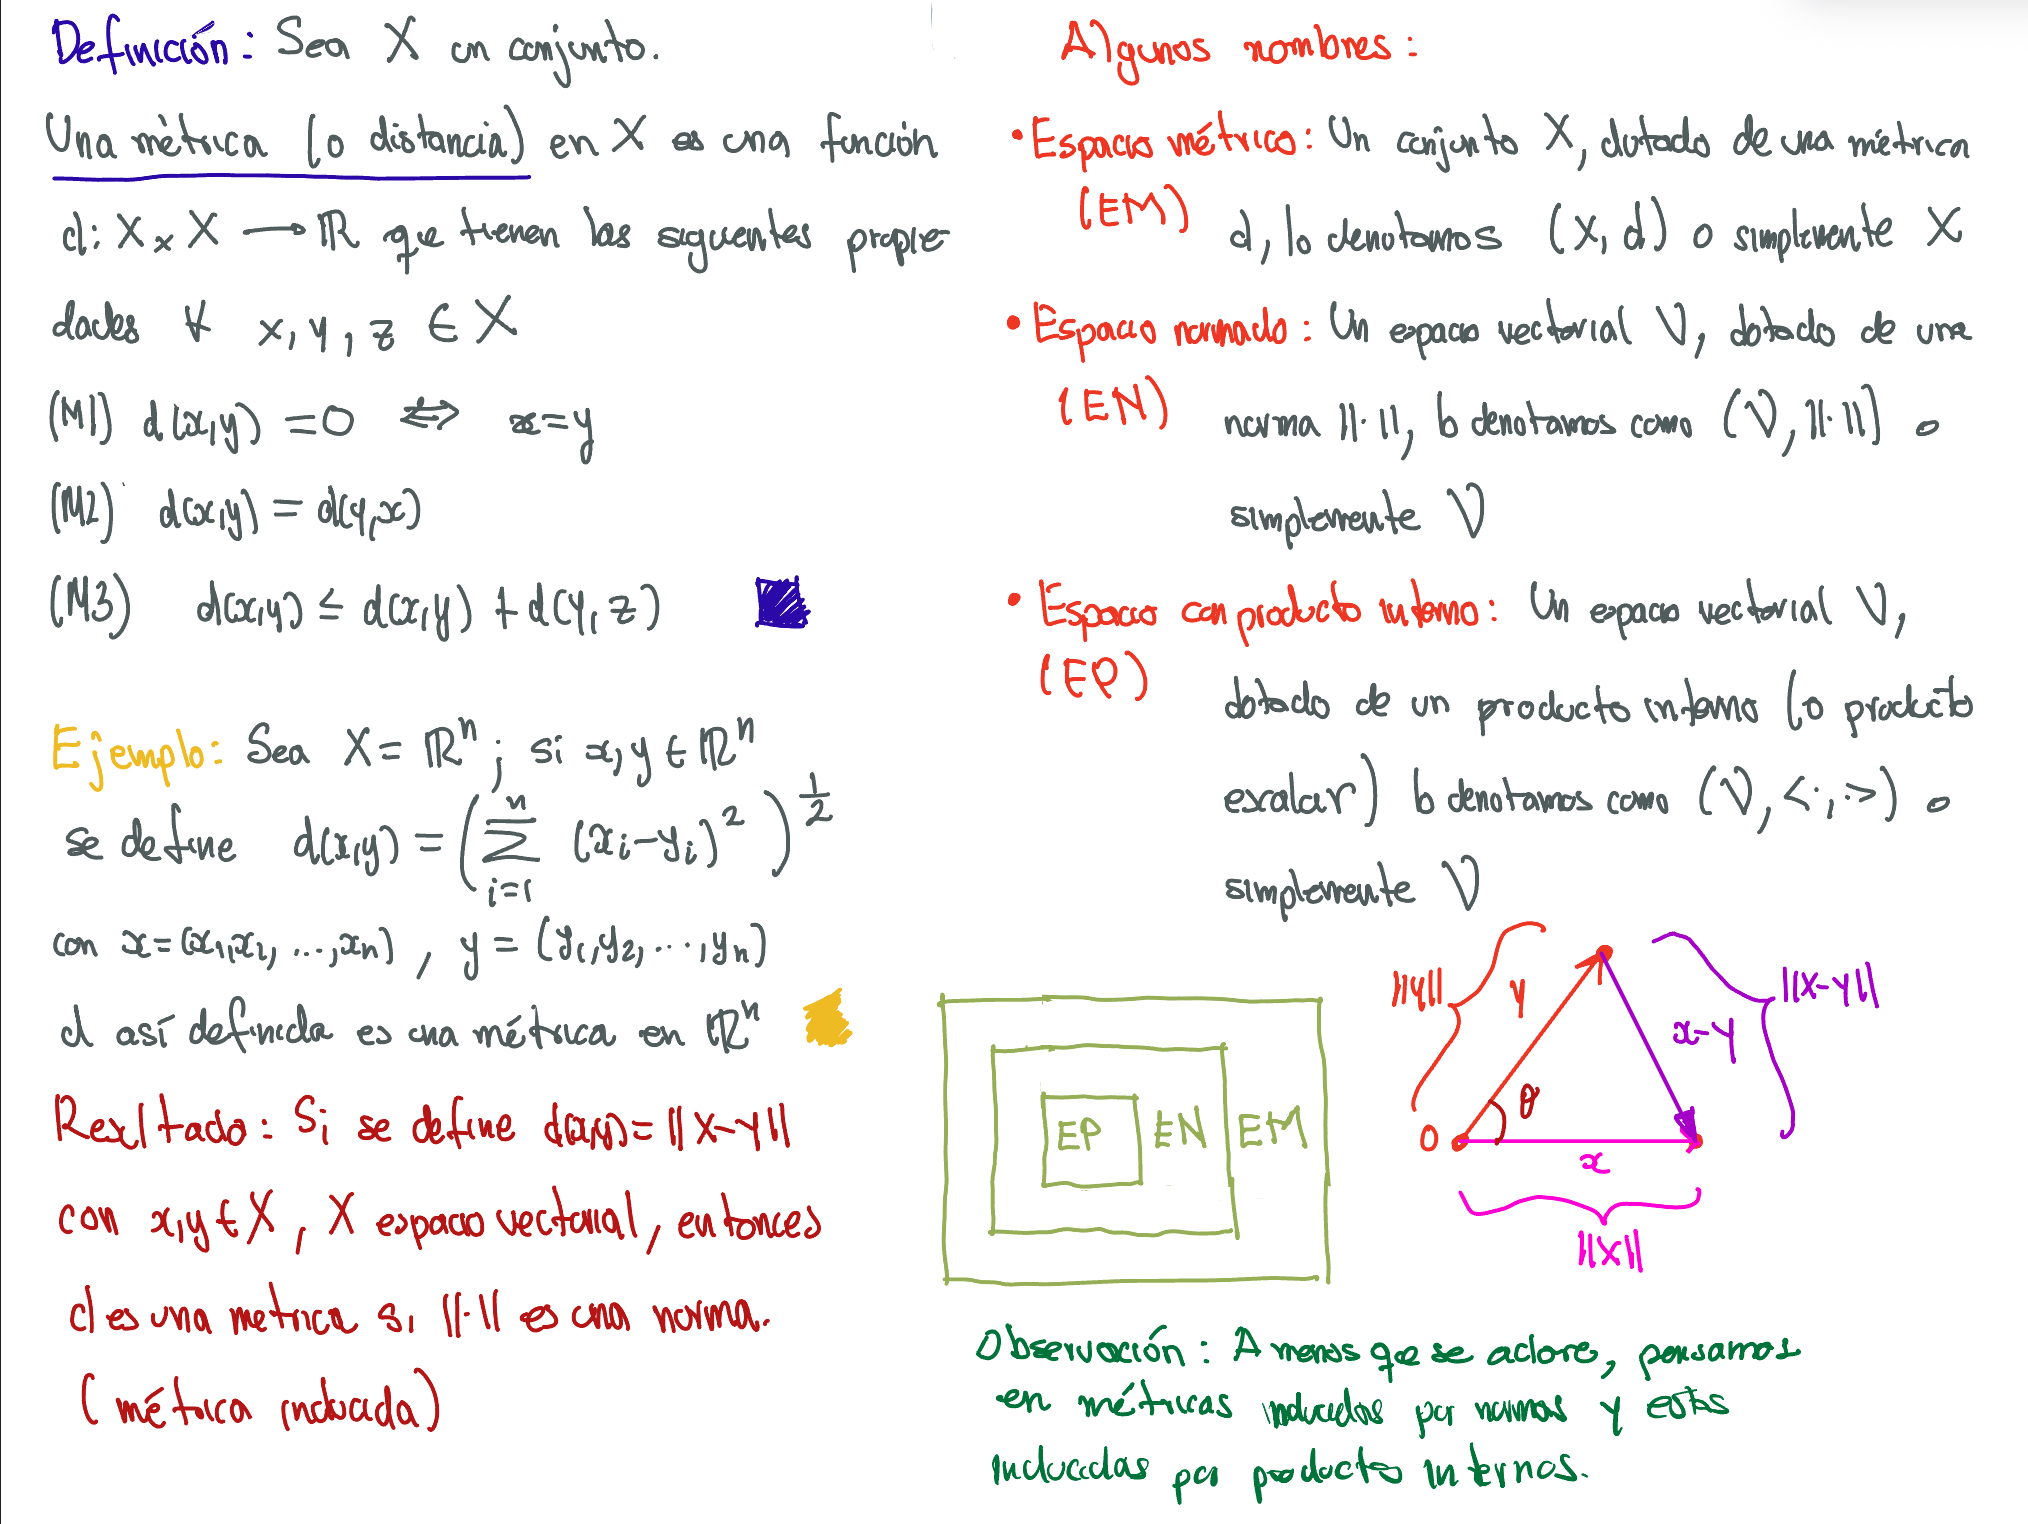 Definición: Sea X un conjunto.
Una métrica (o distancia) en X es una función
d: X x X → ℝ que tienen las siguientes propie
dades ∀ x, y, z ∈ X
(M1) d(x,y) = 0 ⇔ x=y
(M2) d(x,y) = d(y,x)
(M3) d(x,y) ≤ d(x,y) + d(y, z)
Ejemplo: Sea X = ℝⁿ ; si x,y ∈ ℝⁿ
se define d(x,y) = (∑_{i=1}^{n} (xᵢ-yᵢ)²)^{1/2}
con x=(x₁,x₂, ...,xₙ) , y = (y₁,y₂,...,yₙ)
d así definida es una métrica en ℝⁿ
Resultado: Si se define d(x,y)= ||x-y||
con x,y ∈ X , X espacio vectorial, entonces
d es una metrica si ||·|| es una norma.
(métrica inducida)
Algunos nombres:
• Espacio métrico: Un conjunto X, dotado de una métrica
(EM) d, lo denotamos (X, d) o simplemente X
• Espacio normado: Un espacio vectorial V, dotado de una
(EN) norma ||·||, lo denotamos como (V, ||·||) o
simplemente V
• Espacio con producto interno: Un espacio vectorial V,
(EP) dotado de un producto interno (o producto
escalar) lo denotamos como (V, <·,·>) o
simplemente V
EP EN EM
||y|| y x-y ||x-y||
0 θ x
||x||
Observación: A menos que se aclare, pensamos
en métricas inducidas por normas y estas
inducidas por productos internos.